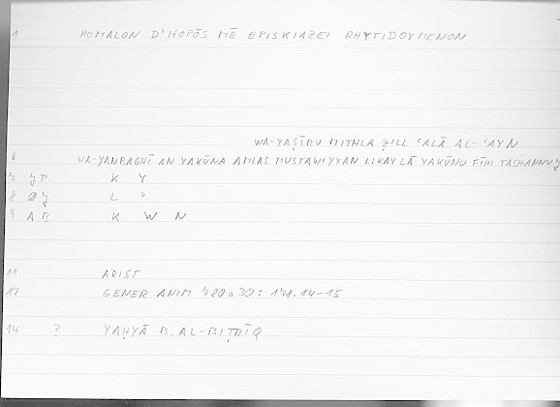 1 HOMALON D'HOPŌS MĒ EPISKIAZEI RHYTIDOYMENON
WA-YAṢĪRU MITHLA ẒILL ʿALĀ AL-ʿAYN
6 WA-YANBAGHĪ AN YAKŪNA AMLAS MUSTAWIYYAN LIKAY LĀ YAKŪNU FĪHI TASHANNUǦ
K Y
8 L ʾ
9 A B K W N
11 ARIST
12 GENER ANIM 780a30: 178.14-15
14 ? YAḤYĀ B. AL-BIṬRĪQ